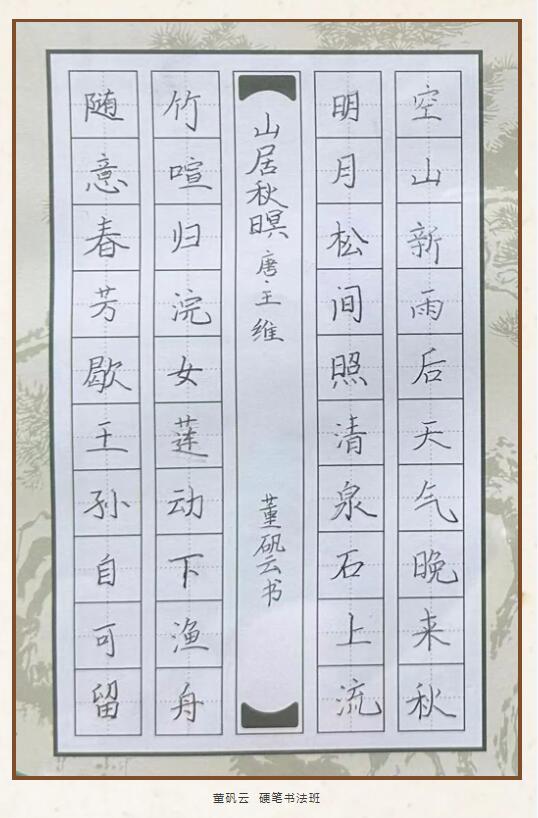 空山新雨后天气晚来秋
明月松间照清泉石上流
山居秋暝 唐·王维
董矾云书
竹喧归浣女莲动下渔舟
随意春芳歇王孙自可留
董矾云 硬笔书法班